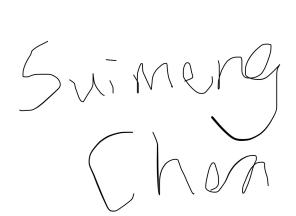 Suimeng
Chen